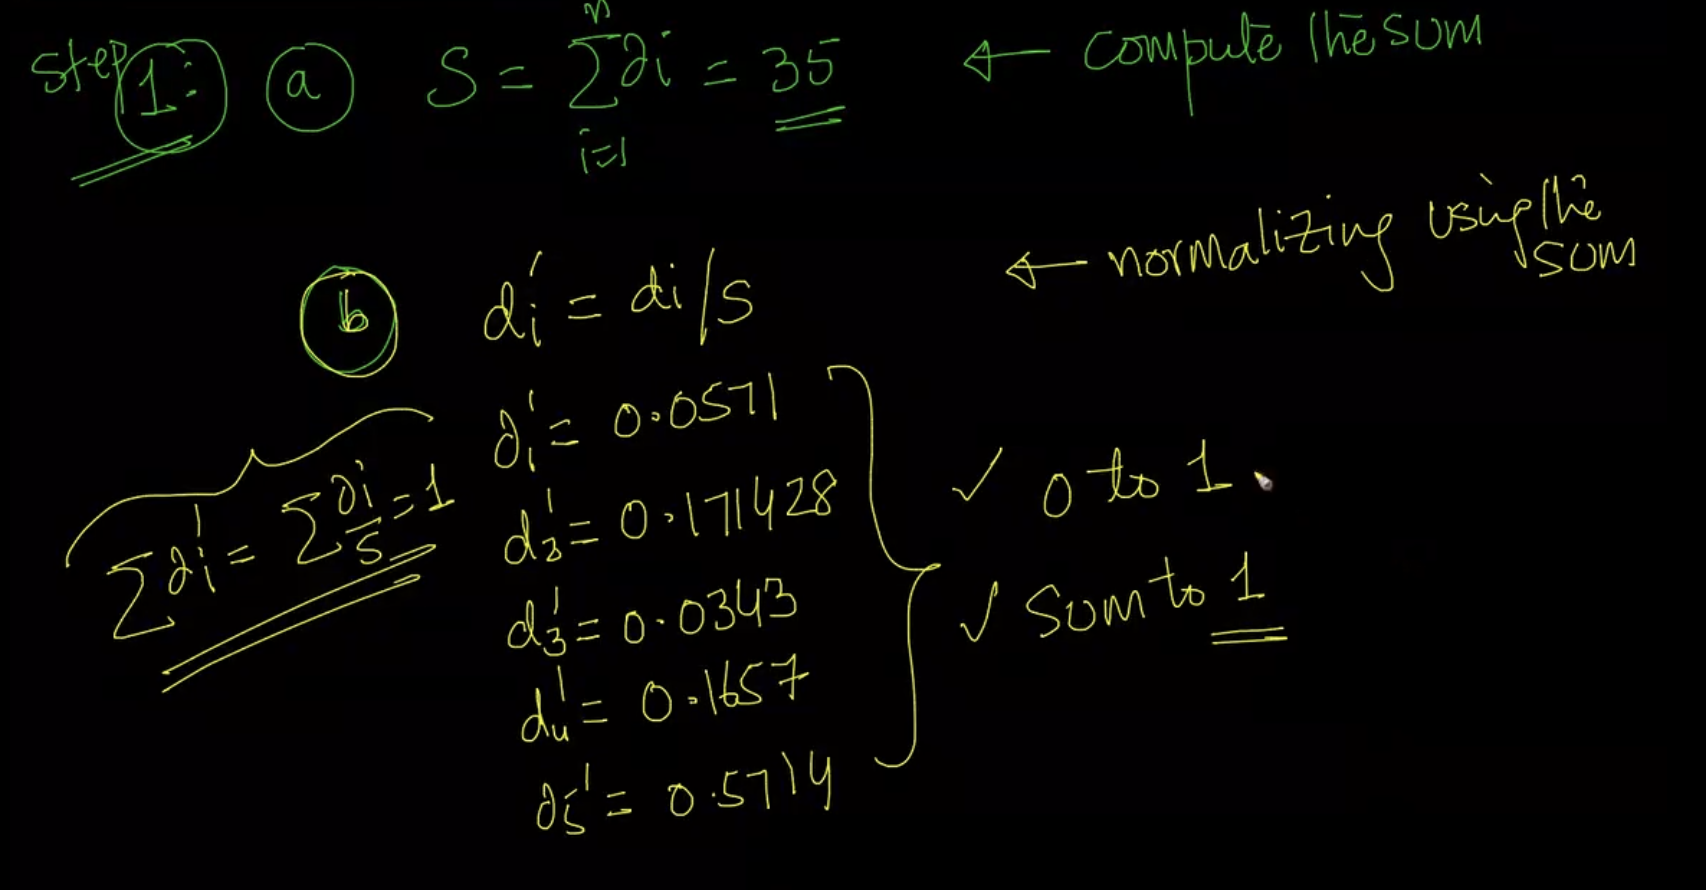 Step 1: a S = n∑i=1 di = 35 ← compute the sum
b di' = di/s ← normalizing using the sum
d1' = 0.0571
d2' = 0.171428
d3' = 0.0343
d4' = 0.1657
d5' = 0.5714
∑di' = ∑di/s = 1
✓ 0 to 1
✓ Sum to 1